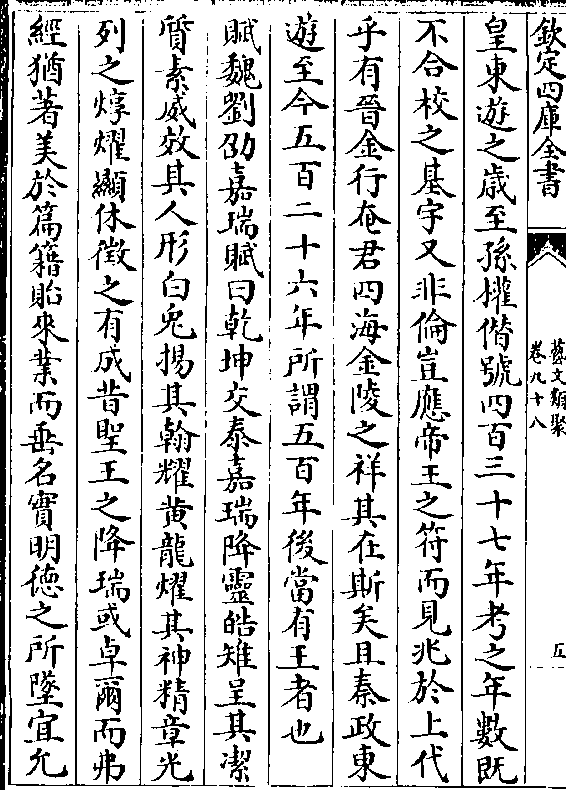 欽定四庫全書
藝文類聚
卷九十八
五
皇東遊之歳至孫權僭號四百三十七年考之年數既
不合校之基宇又非倫豈應帝王之符而見兆於上代
乎有晉金行奄君四海金陵之祥其在斯矣且秦政東
遊至今五百二十六年所謂五百年後當有王者也
賦魏劉劭嘉瑞賦曰乾坤交泰嘉瑞降靈皓雉呈其潔
質素威效其人形白兎揚其翰耀黄龍耀其神精章光
列之焞燿顯休徵之有成昔聖王之降瑞或卓爾而弗
經猶著美於篇籍貽來業而垂名實明德之所墜宜允